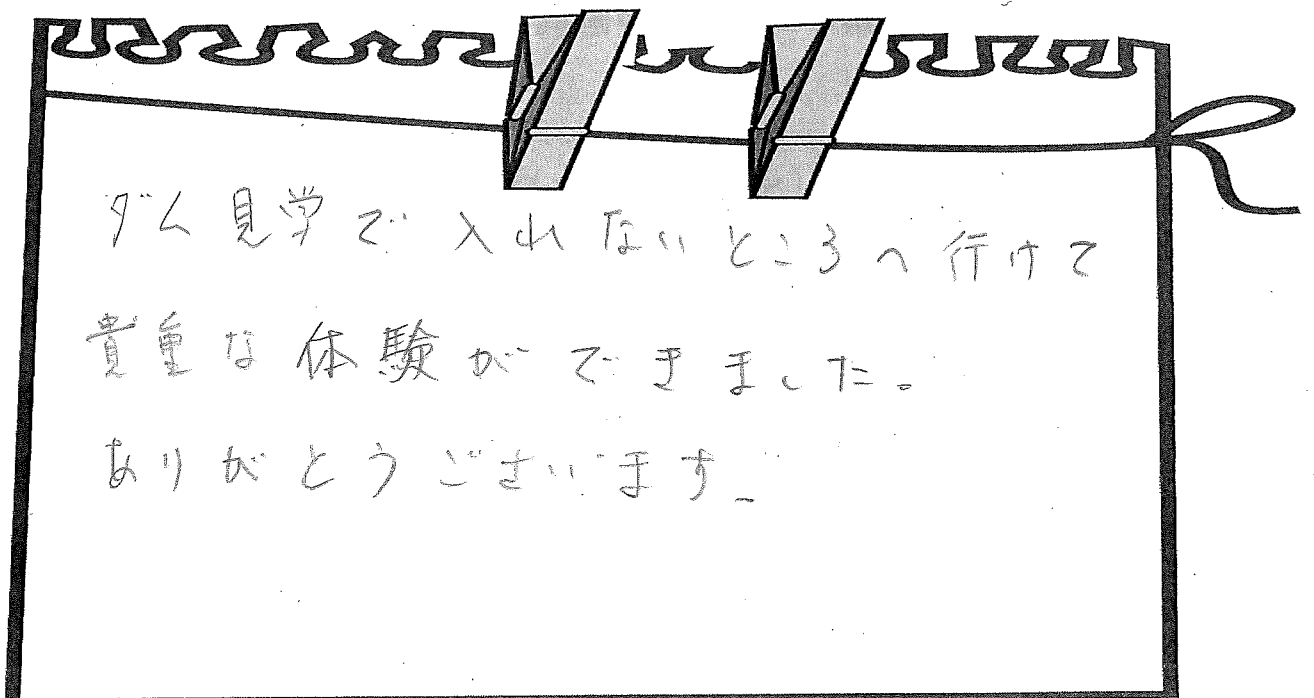 ダム見学で入れないところへ行けて
貴重な体験ができました。
ありがとうございます。